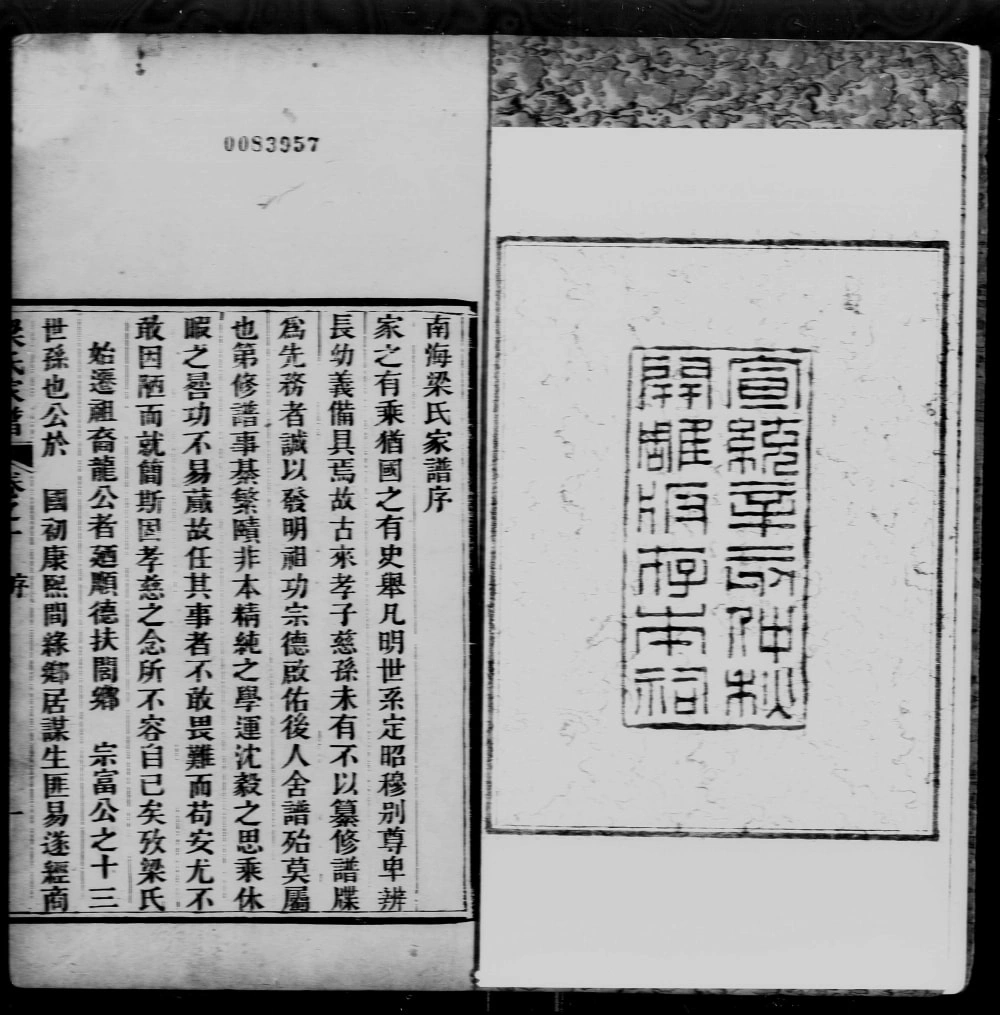 宣統辛亥仲秋
開雕版存本祠
0083957
南海梁氏家譜序
家之有乘猶國之有史舉凡明世系定昭穆别尊卑辨
長幼義備具焉故古來孝子慈孫未有不以纂修譜牒
爲先務者誠以發明祖功宗德啟佑後人舍譜殆莫屬
也第修譜事綦繁賾非本精純之學運沈毅之思乘休
暇之晷功不易蕆故任其事者不敢畏難而苟安尤不
敢因陋而就簡斯固孝慈之念所不容自已矣攷梁氏
始遷祖裔龍公者廼順德扶閭鄉　宗富公之十三
世孫也公於　國初康熙間緣鄉居謀生匪易遂經商
梁氏家譜　卷之一　序　一